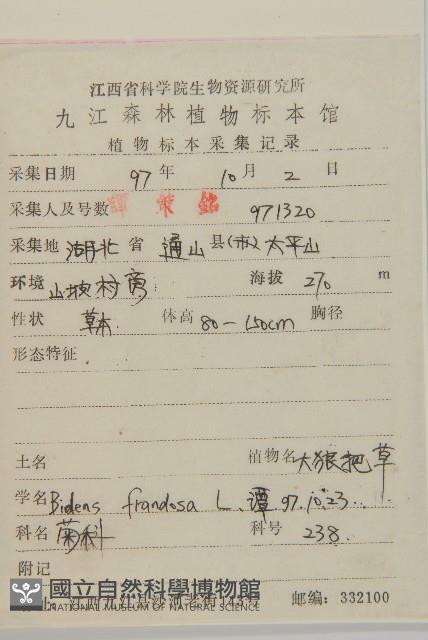 江西省科学院生物资源研究所
九江森林植物标本馆
植物标本采集记录
采集日期 97 年 10 月 2 日
采集人及号数 谭策铭 971320
采集地 湖北 省 通山 县(市) 太平山
环境 山坡村旁 海拔 270 m
性状 草本 体高 80-150cm 胸径
形态特征
土名 植物名 大狼把草
学名 Bidens frondosa L. 谭 97.10.23.
科名 菊科 科号 238.
附记
國立自然科學博物館
NATIONAL MUSEUM OF NATURAL SCIENCE
邮编:332100